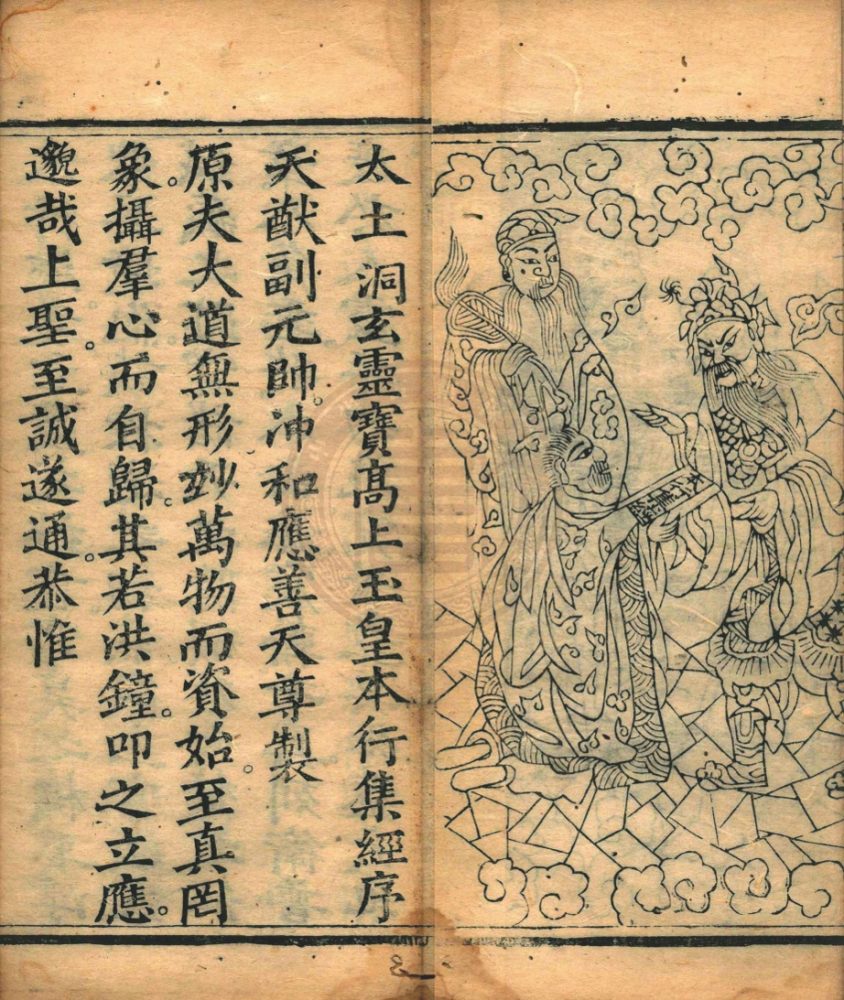 太土洞玄靈寶高上玉皇本行集經序
天猷副元帥。冲和應善天尊製
原夫大道無形。玅萬物而資始。至真罔
象。攝羣心而自歸。其若洪鐘。叩之立應。
邈哉上聖。至誠遂通。恭惟